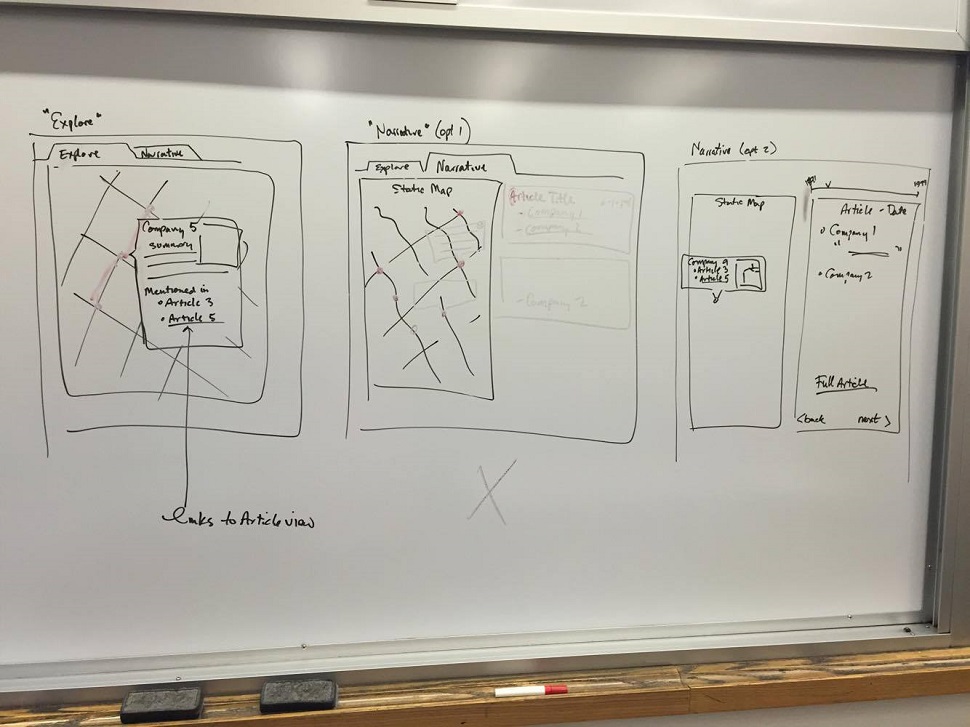 "Explore"
Explore
Narrative
Company 5
summary
Mentioned in
• Article 3
• Article 5
links to Article view
"Narrative" (opt 1)
Explore
Narrative
Static Map
Article Title
- Company 1
- Company 2
- Company 2
X
Narrative (opt 2)
Static Map
Company 9
• Article 3
• Article 5
Article - Date
• Company 1
" "
• Company 2
Full Article
< back next >